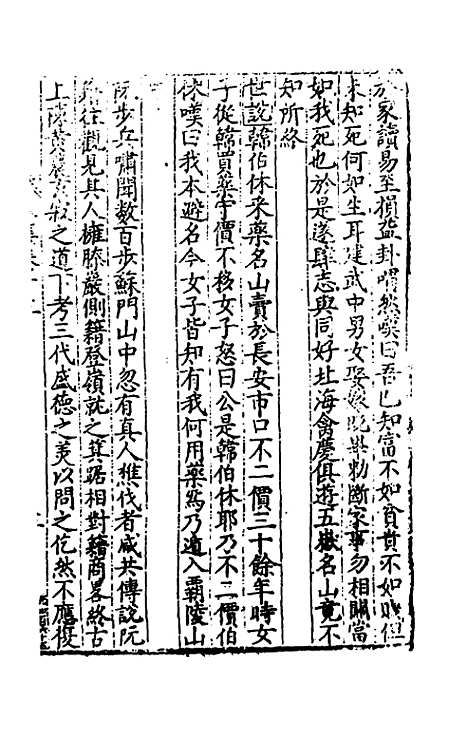 於家讀易至損益卦喟然嘆曰吾已知富不如貧貴不如賤但
未知死何如生耳建武中男女娶嫁既畢勑斷家事勿相關當
如我死也於是遂肆志與同好北海禽慶俱遊五嶽名山竟不
知所終
世說韓伯休采藥名山賣於長安市口不二價三十餘年時女
子從韓買藥守價不移女子怒曰公是韓伯休耶乃不二價伯
休嘆曰我本避名今女子皆知有我何用藥為乃遁入覇陵山
阮步兵嘯聞數百步蘇門山中忽有真人樵伐者咸共傳說阮
籍往觀見其人擁膝巖側籍登嶺就之箕踞相對籍商畧終古
上陳黃農玄寂之道下考三代盛德之美以問之仡然不應復